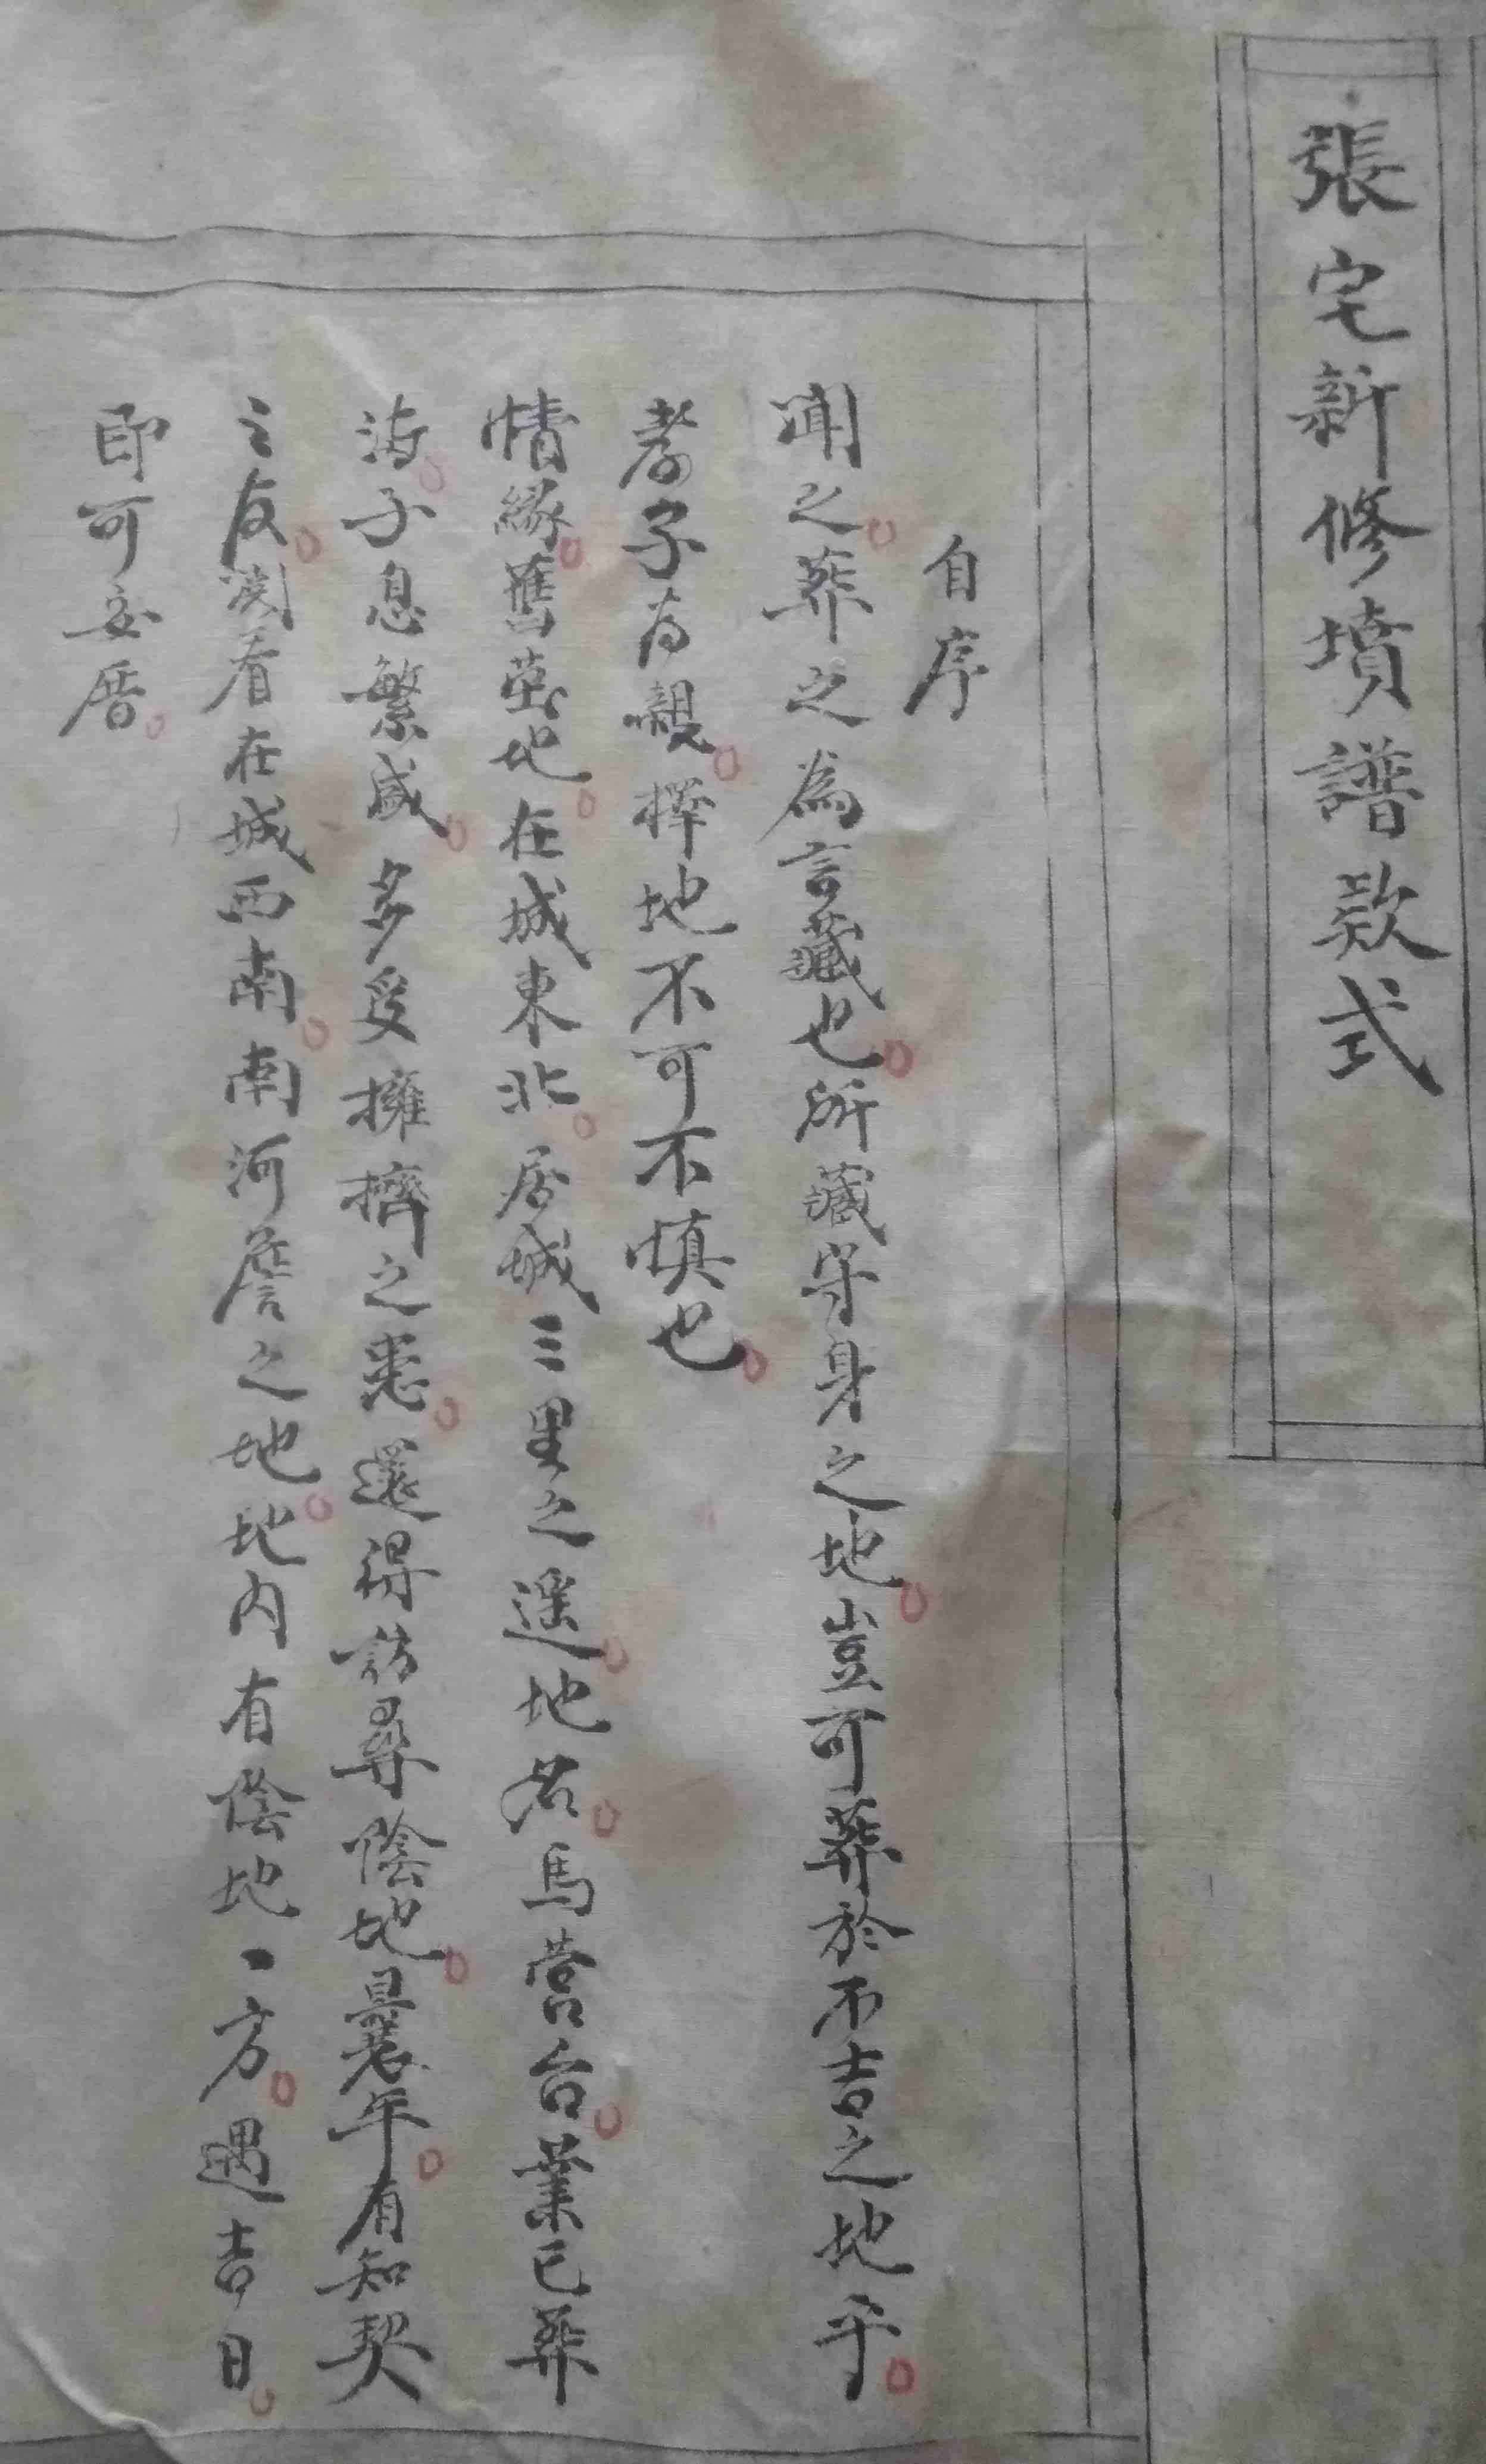 張宅新修墳譜欵式
自序
聞之。葬之為言藏也。所藏守身之地。豈可葬於不吉之地乎。
孝子为親。擇地不可不慎也。
情緣。舊塋地。在城東北。居城三里之遥。地名。馬营台。業已葬
滿。子息繁盛。多受擁擠之患。還得訪尋陰地。曩年。有知契
之友。閲看在城西南。南河詹之地。地内有陰地一方。遇吉日。
即可安厝。